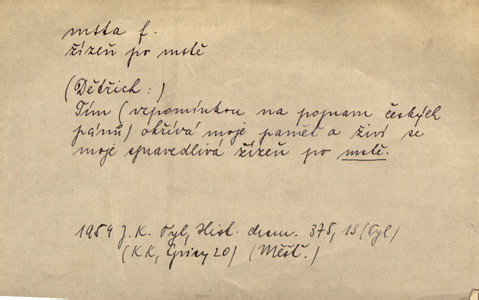 msta f.
žízeň po mstě
(Dětřich:)
Tím (vzpomínkou na popravu českých
pánů) okřívá moje paměť a živí se
moje spravedlivá žízeň po mstě.
1959 J. K. Tyl, Hist. dram. 375, 13 (Tyl)
(KK, Spisy 20) (Měšť.)